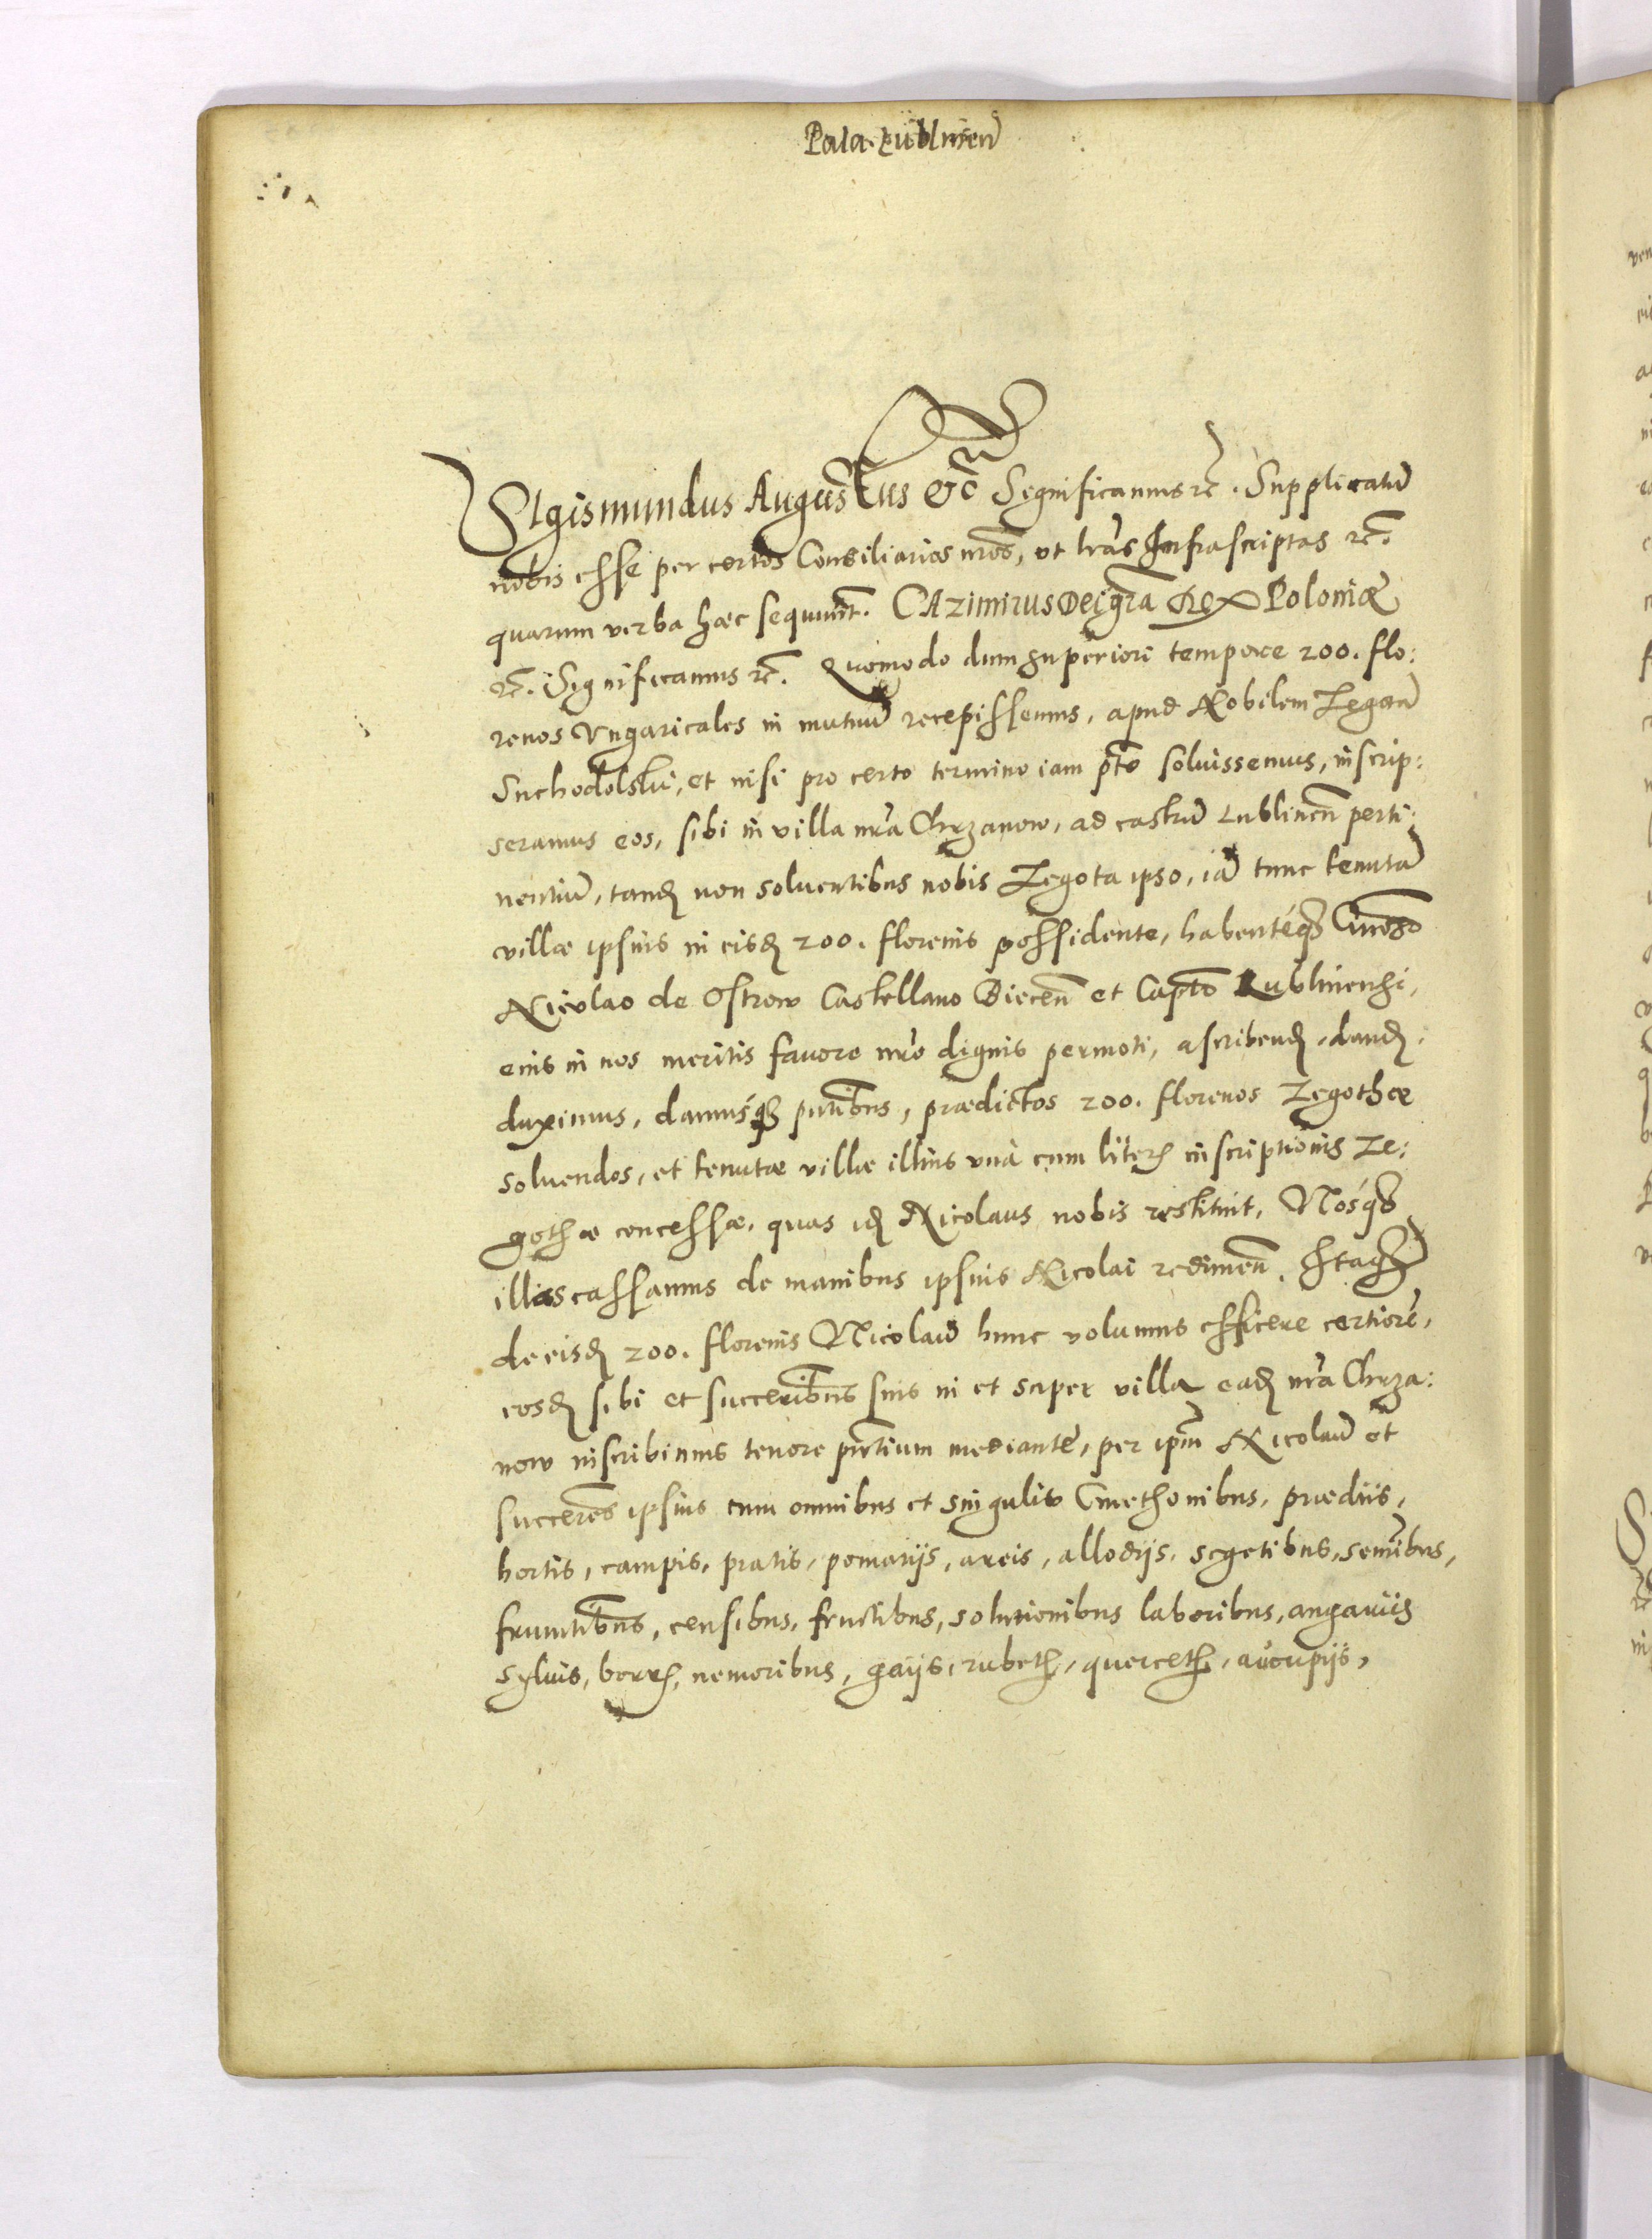 Pala. Lublinen̄
SIgismundus Augustus &c̄ Significamus rc̄. Supplicatū
nobis esse per certos Consiliarios nr̄os, vt lrās Infrascriptas rc̄.
quarum verba haec sequunt̄. CAzimirus Dei gr̄a Rex Poloniae
rc̄. Significamus rc̄. Quomodo dum superiori tempore 200. flo:
renos Vngaricales in mutuū recepissemus, apud Nobilem Zegotā
Suchodolski, et nisi pro certo termino iam pt̄o soluissemus, inscrip:
seramus eos, sibi in villa nr̄a Chrzanow, ad castrū Lublinen̄ perti:
nentiū, tandȝ non soluentibus nobis Zegota ipso, iā tunc tenutā
villae ipsius in eisdȝ 200. florenis possidente, habentéqȝ Gn̄oso
Nicolao de Ostrow Castellano Biecen̄ et Capt̄o Lublinensi,
eius in nos meritis favore nr̄o dignis permoti, ascribendȝ, dandȝ,
duximus, damusqȝ pn̄tibus, praedictos 200. florenos Zegothae
soluendos, et tenutae villae illius vnà cum literȝ inscriptionis Ze:
gothae concessae, quas idȝ Nicolaus nobis restituit, Nosqȝ
illas cassamus de manibus ipsius Nicolai redimen̄. Itaqȝ
de eisdȝ 200. florenis Nicolaū hunc volumus efficere certiorē,
eosdȝ sibi et succeribus suis in et super villa eadȝ nr̄a Chrza:
now inscribimus tenore pn̄tium mediante, per ipm̄ Nicolaū et
succeres ipsius cum omnibus et singulis Cmethonibus, praediis,
hortis, campis, pratis, pomariis, areis, allodijs, segetibus, semībus,
frumtībus, censibus, fructibus, solutionibus laboribus, angariis
syluis, borrȝ, nemoribus, gaijs, rubetȝ, quercetȝ, aucupijs,